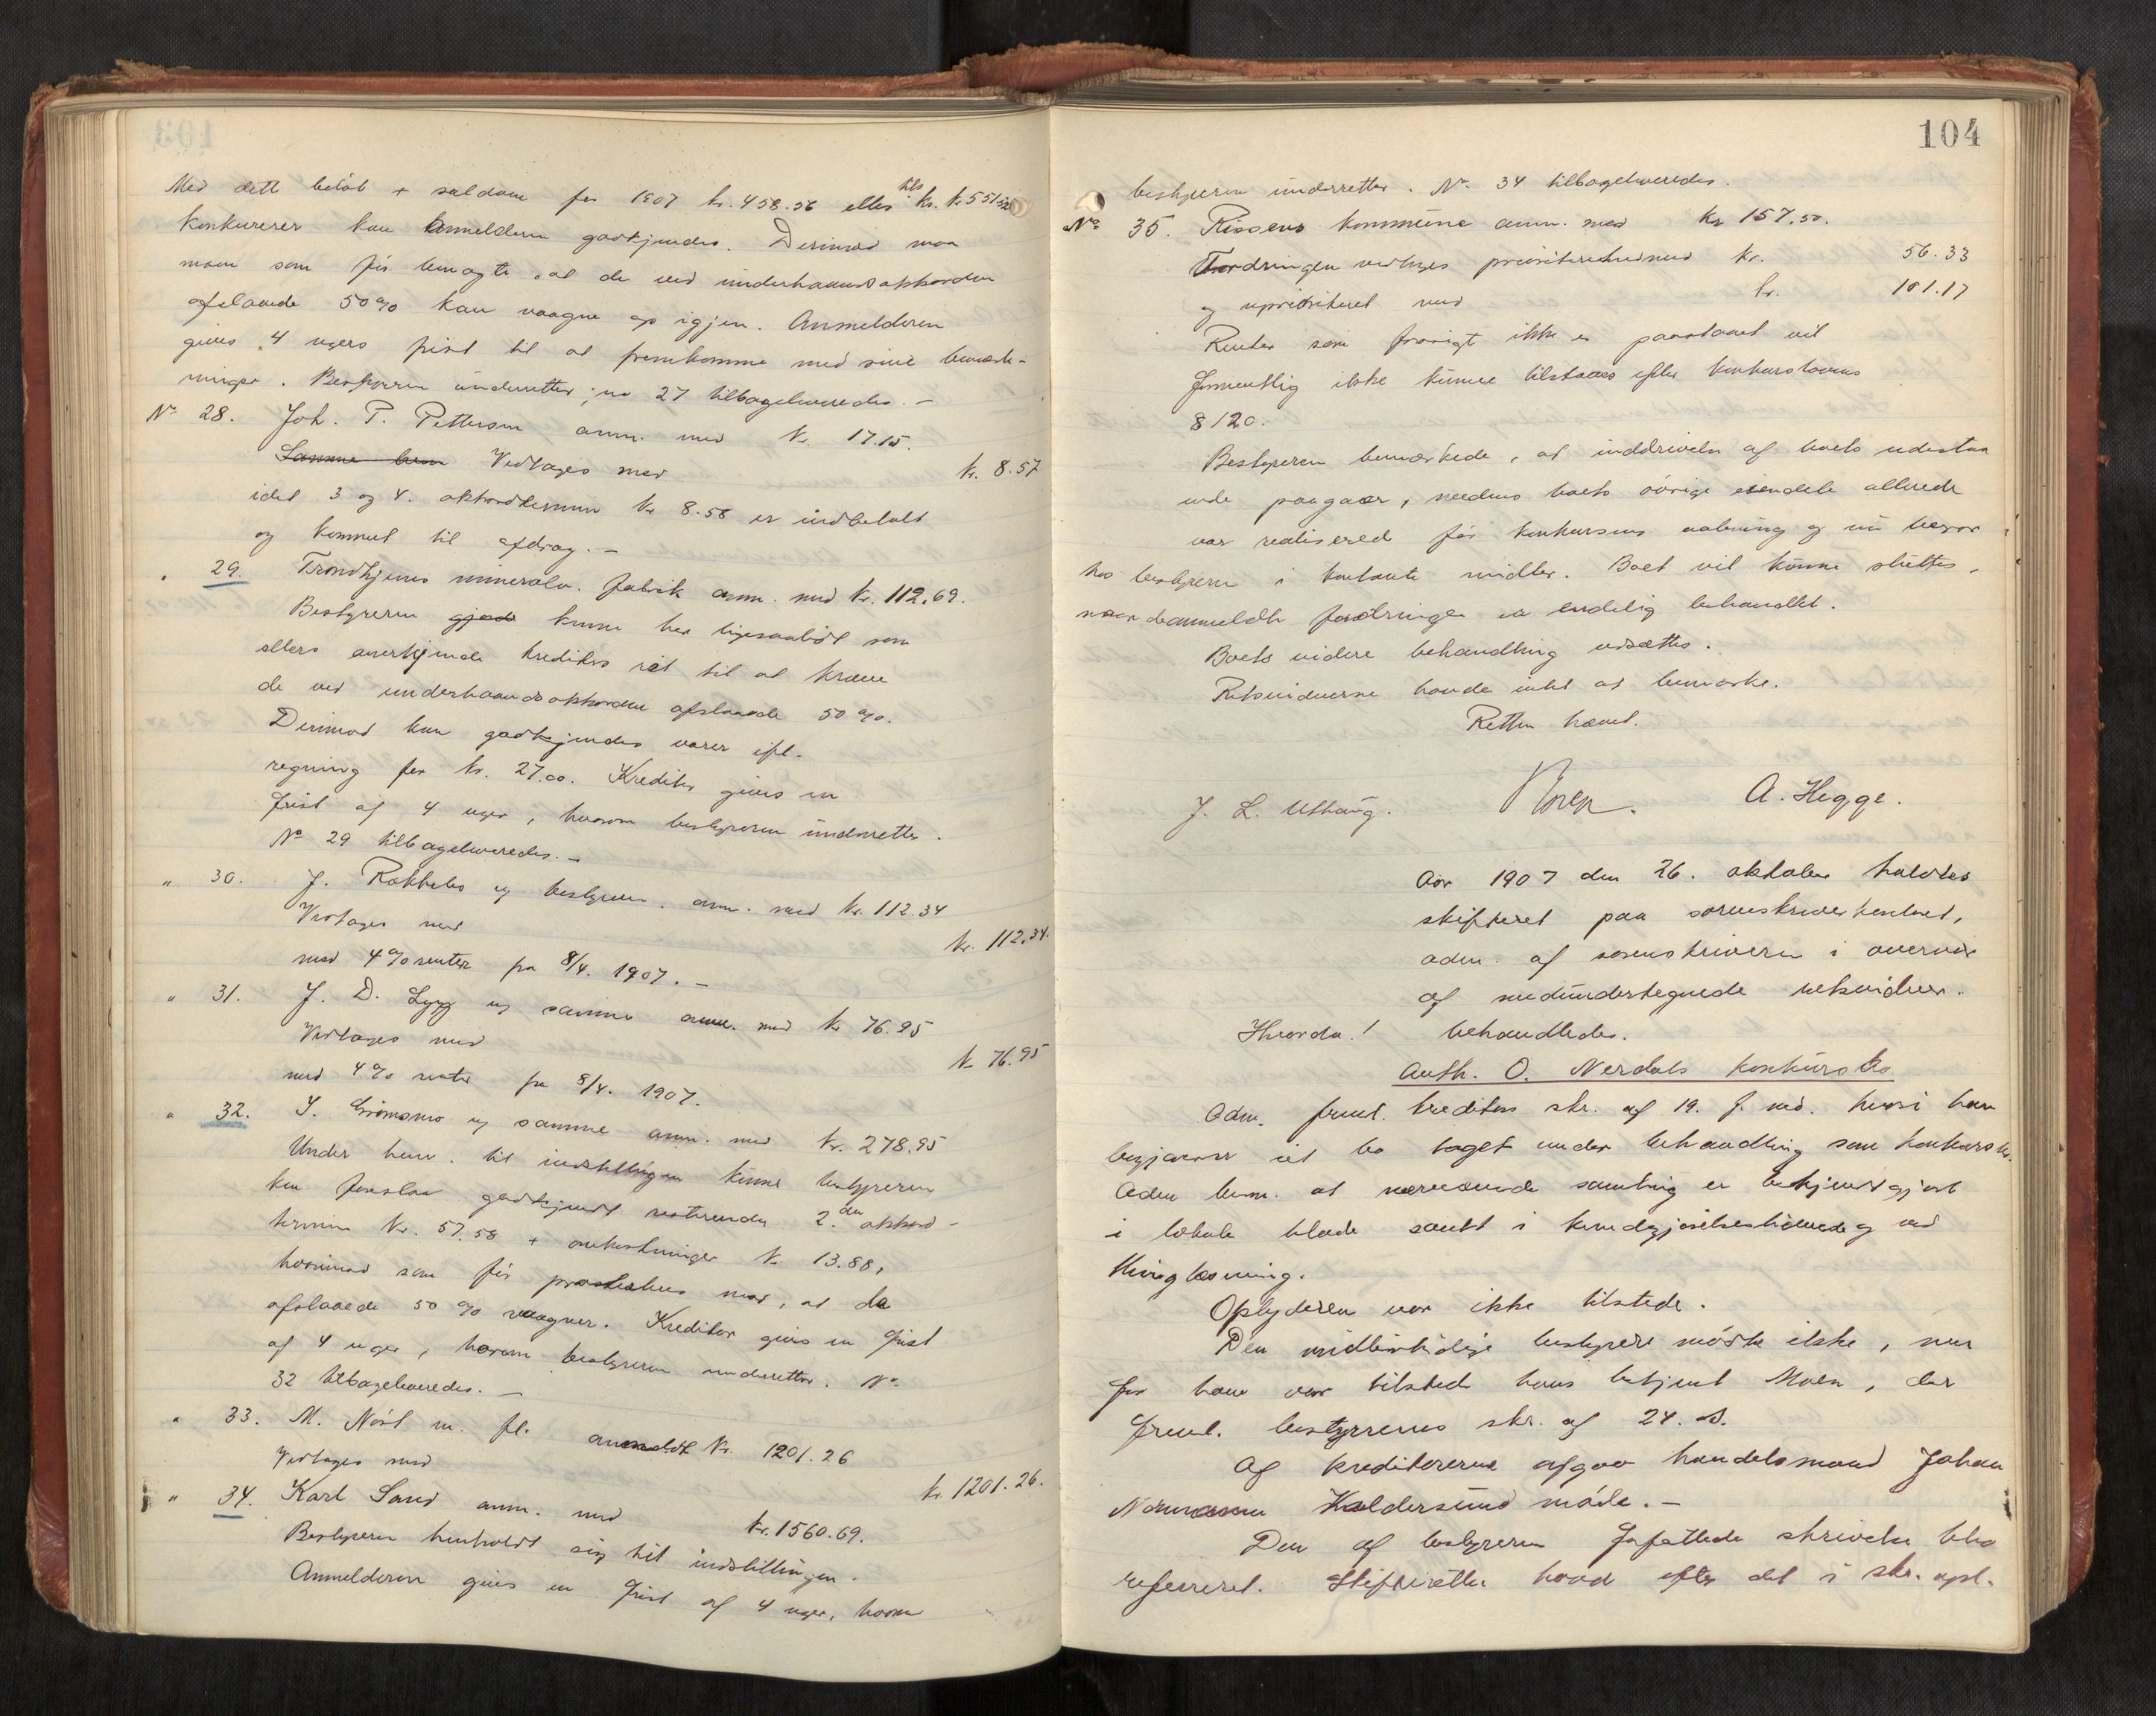 Med dette beløb + saldoen for 1907 kr. 458.56 eller tils. kr. 551.52
konkurerer kan anmelderen godkjendes. Derimod maa
man som før benægte, at de ved underhaandsakkorden
afslaaede 50% kan vaagne op igjen. Anmelderen
gives 4 ugers frist til at fremkomme med sine bemærk-
ninger. Bestyreren underretter; no 27 tilbageleveredes. –
No 28. Joh. P. Pettersen anm. med kr. 17.15.
Samme bem Vedtages med kr. 8.57
idet 3 og 4. akkordtermin kr 8.58 er indbetalt
og kommet til afdrag. –
" 29. Trondhjems mineralv. fabrik anm. med kr. 112.69.
Bestyreren gjorde kunne her ligesaalidt som
ellers anerkjende kreditors ret til at kræve
de ved underhaandsakkorden afslaaede 50%.
Derimod kan godkjendes varer ifl.
regning for kr. 27.00. Kreditor gives en
frist af 4 uger, hvorom bestyreren underretter.
No 29 tilbageleveredes. –
" 30. J. Rokkeles ny bestyreren. anm. med kr. 112.34
Vedtages med kr. 112.34.
med 4% renter fra 8/4. 1907. –
" 31. J. D. Lyng ny samme anm. med kr 76.95
Vedtages med kr. 76.95
med 4% renter fra 8/4. 1907.
" 32. I. Grømsmo ny samme anm. med kr. 278.95
Under henv. til indstillingen kunne bestyreren
kun foreslaa godkjendt resterende 2.den akkord-
termin kr. 57.58 + omkostninger kr. 13.88,
hvorimod som før protesteres mod, at de
afslaaede 50% vaagner. Kreditor gives en frist
af 4 uger, hvorom bestyreren underretter. No
32 tilbageleveredes. –
" 33. M. Nøst m. fl. anmeldt kr. 1201.26
Vedtages med kr. 1201.26.
" 34. Karl Sand anm. med kr. 1560.69.
Bestyreren henholdt sig til indstillingen.
Anmelderen gives en frist af 4 uger, hvorom
104
bestyreren underretter. No. 34 tilbageleveredes.
No 35. Rissens kommune anm. med kr 157.50.
Fordringen vedtages prioriteret med kr. 56.33
og uprioriteret med kr. 101.17
Renter som forøvrigt ikke er paastaaet vil
formentlig ikke kunne tilstaaes efter konkurslovens
§ 120.
Bestyreren bemærkede, at inddrivelse af boets udestaa
ende paagaar, medens boets øvrige eiendele allerede
var realiserede før konkursens aabning og nu beror
hos bestyreren i kontante midler. Boet vil kunne sluttes,
naar de anmeldte fordringer er endelig behandlet.
Boets videre behandling udsættes.
Retsvidnerne havde intet at bemærke.
Retten hævet.
J. L. Uthaug. A. Hegge.
Aar 1907 den 26. oktober holdtes
skifteret paa sorenskriverkontoret,
adm. af sorenskriveren i overvær
af medundertegnede retsvidner.
Hvorda! behandledes.
Anth. O. Nerdals konkursbo
Adm. freml. kreditors skr. af 19. f. md. hvori han
begjærer sit bo taget under behandling som konkursbo.
Adm bem. at nærværende samling er bekjendtgjort
i lokale blade samt i kundgjørelsestidende og ved
kirkelæsning.
Opbyderen var ikke tilstede.
Den midlertidige bestyrer mødte ikke, men
for ham var tilstede hans betjent Moen, der
freml. bestyrerens skr. af 24. ds.
Af kreditorerne afgav handelsmand Johan
Normann Koldersund møde. –
Den af bestyreren forfattede skrivelse blev
refereret. Skifteretten havde efter det i skr. opl.